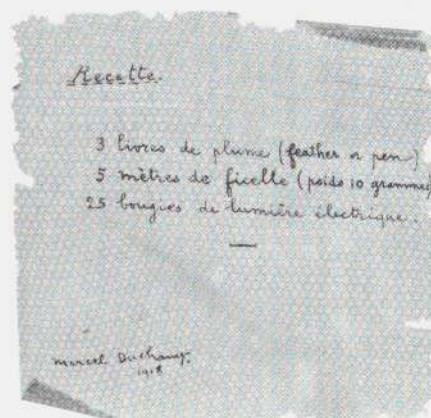 Recette.
3 livres de plume (feather or pen)
5 mètres de ficelle (poids 10 grammes)
25 bougies de lumière électrique.
Marcel Duchamp
1918